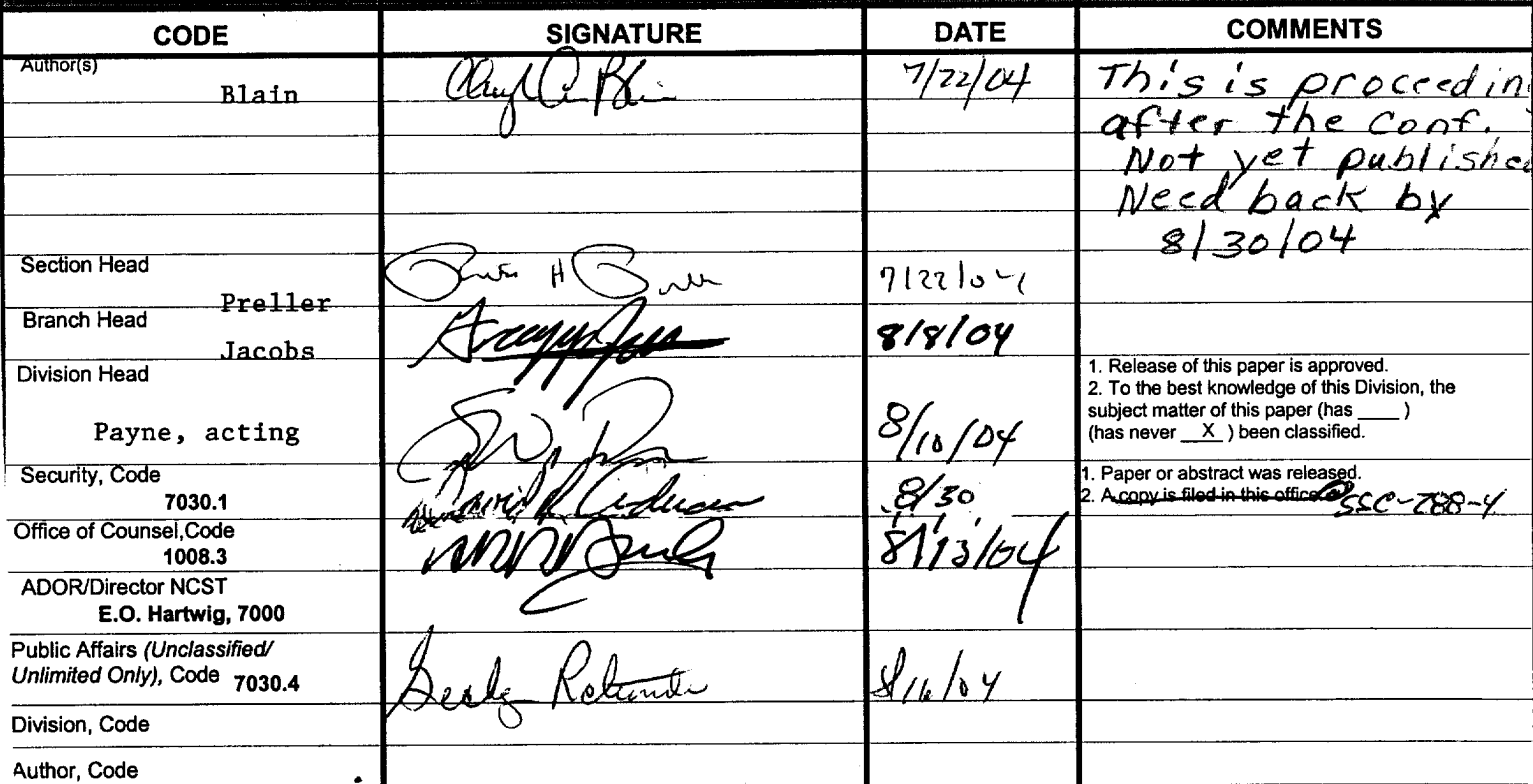 CODE SIGNATURE DATE COMMENTS
Author(s)
Blain 7/22/04
This is proceedin
after the Conf.
Not yet publishe
Need back by
8/30/04
Section Head
Preller 7/22/04
Branch Head
Jacobs 8/8/04
Division Head
Payne, acting 8/10/04
1. Release of this paper is approved.
2. To the best knowledge of this Division, the
subject matter of this paper (has ____ )
(has never X ) been classified.
Security, Code
7030.1 8/30
1. Paper or abstract was released.
2. A copy is filed in this office SSC-788-4
Office of Counsel,Code
1008.3 8/13/04
ADOR/Director NCST
E.O. Hartwig, 7000
Public Affairs (Unclassified/
Unlimited Only), Code 7030.4 8/16/04
Division, Code
Author, Code